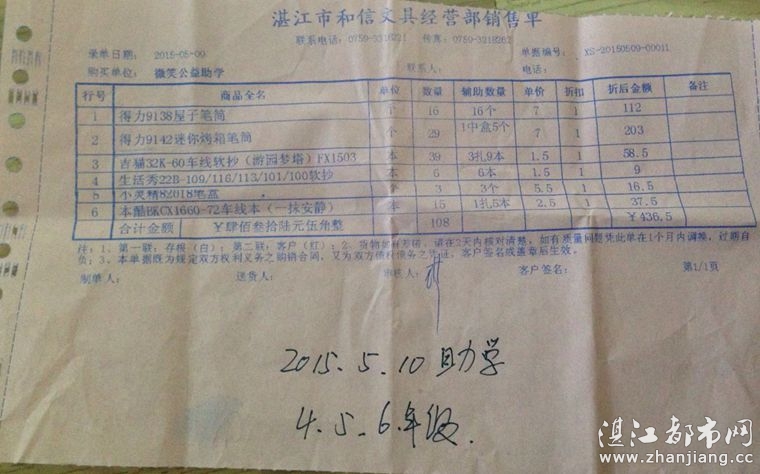 湛江市和信文具经营部销售单
联系电话：0759-3318221 传真：0759-3218262
录单日期： 2015-05-09 单据编号： XS-20150509-00011
购买单位： 微笑公益助学 联系人： 电话：
行号 商品全名 单位 数量 辅助数量 单价 折扣 折后金额 备注
1 得力9138屋子笔筒 个 16 16个 7 1 112
2 得力9142迷你烤箱笔筒 个 29 1中盒5个 7 1 203
3 吉猫32K-60车线软抄（游园梦塔）FX1503 本 39 3扎9本 1.5 1 58.5
4 生活秀22B-109/116/113/101/100软抄 本 6 6本 1.5 1 9
5 小灵精82018笔盒 个 3 3个 5.5 1 16.5
6 本酷BKCX1660-72车线本（一抹安静） 本 15 1扎5本 2.5 1 37.5
合计金额 ￥肆佰叁拾陆元伍角整 108 ￥436.5
注：1、第一联：存根（白）；第二联：客户（红）；2、货物如有差错，请在2天内核对清楚，如有质量问题凭此单在1个月内调换，过期自
负；3、本单据既为规定双方权利义务之购销合同，又为双方债权债务之凭证，客户签名或盖章后生效。
制单人： 送货人： 审核人： 客户签名： 第1/1页
2015.5.10助学
4.5.6年级.
湛江都市网
www.zhanjiang.cc